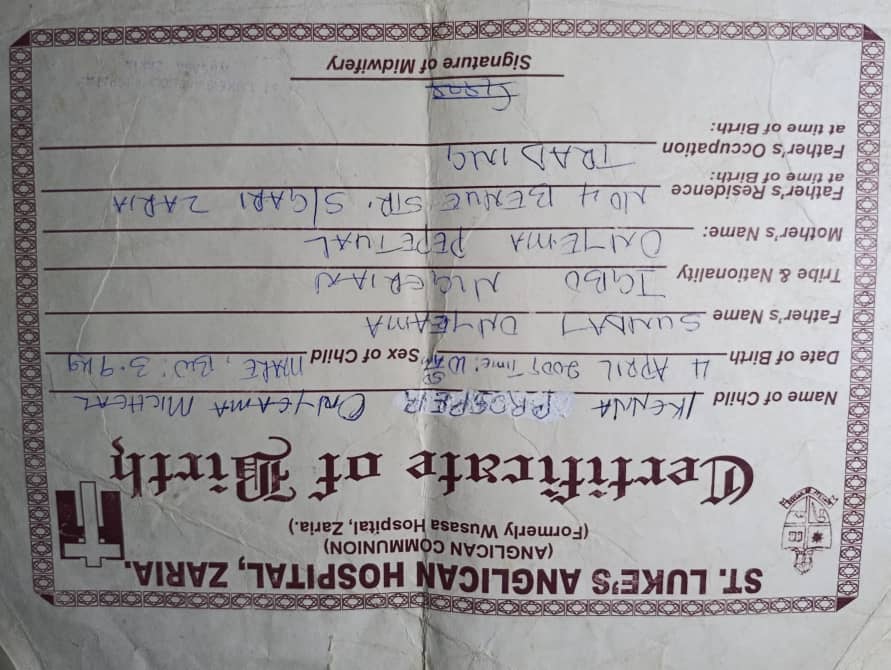 ST. LUKE'S ANGLICAN HOSPITAL, ZARIA.
(ANGLICAN COMMUNION)
(Formerly Wusasa Hospital, Zaria.)
Certificate of Birth
Name of Child IKENNA PROSPER ONYEAMA MICHEAL
Date of Birth 4 APRIL Time: Sex of Child MALE, BW: 3.9kg
Father's Name SUNDAY ONYEAMA
Tribe & Nationality IGBO NIGERIAN
Mother's Name: ONYEMA PEPETUAL
Father's Residence at time of Birth: NO 4 BENUE STR. S/GARI ZARIA
Father's Occupation at time of Birth: TRADING
Signature of Midwifery